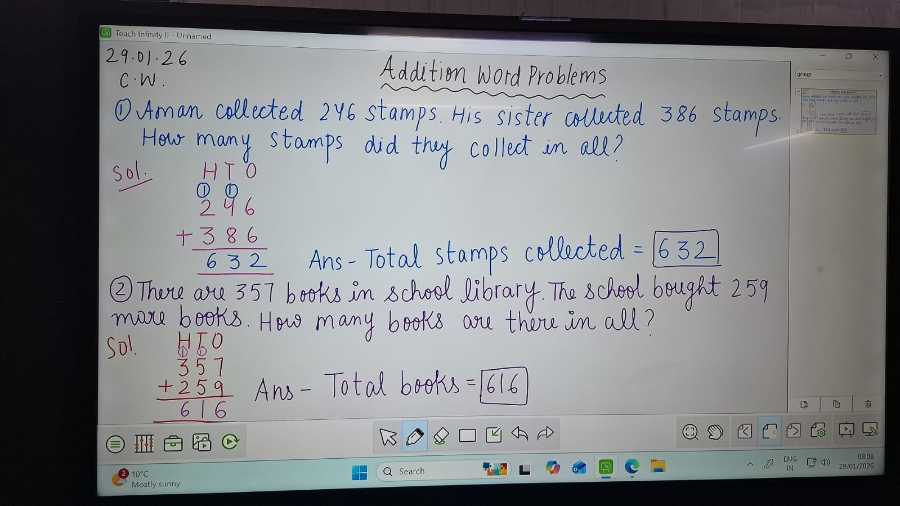 Teach Infinity Unnamed
29.01.26
C.W.
Addition Word Problems
① Aman collected 246 stamps. His sister collected 386 stamps.
How many stamps did they collect in all?
Sol.
H T O
① ①
2 4 6
+ 3 8 6
6 3 2
Ans - Total stamps collected = 632
② There are 357 books in school library. The school bought 259
more books. How many books are there in all?
Sol.
H T O
① ①
3 5 7
+ 2 5 9
6 1 6
Ans - Total books = 616
2
10°C
Mostly sunny
Search
ENG
IN
08:08
29/01/2026